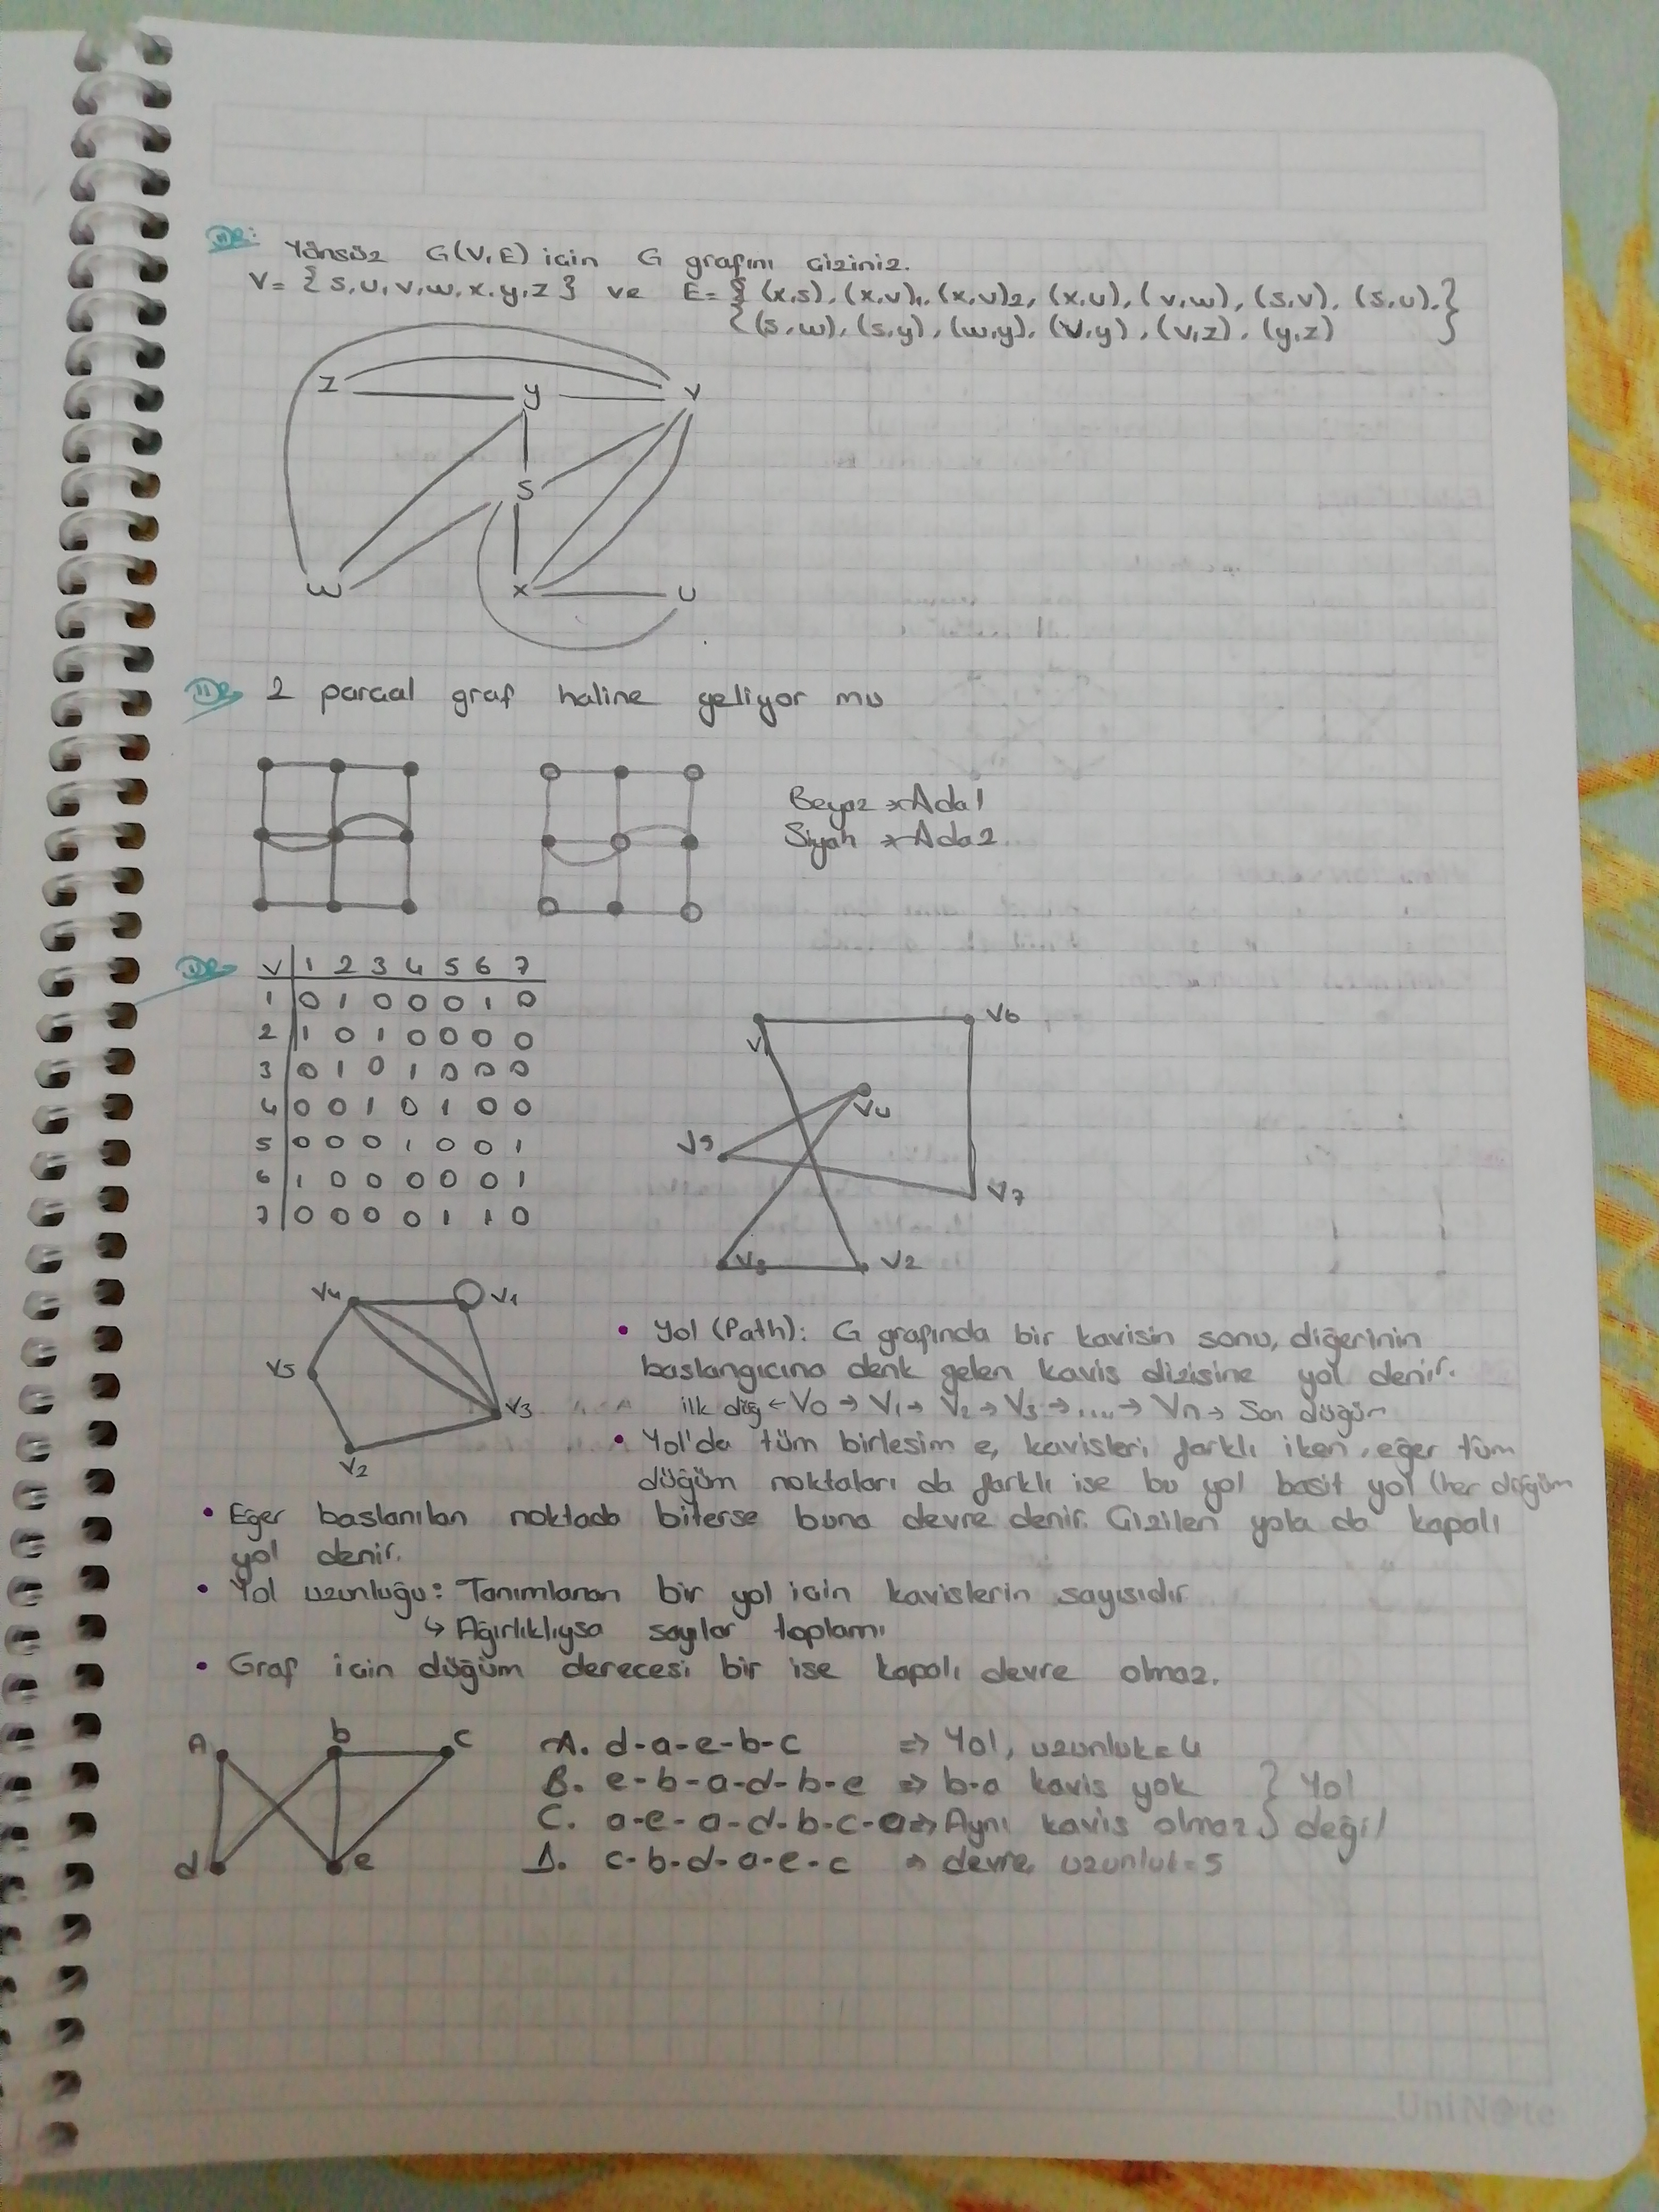 Yönsüz G(V,E) icin G grafını ciziniz.
V= { s,u,v,w,x,y,z } ve E= { (x,s), (x,v)1, (x,v)2, (x,u), (v,w), (s,v), (s,u),
(s,w), (s,y), (w,y), (v,y), (v,z), (y,z) }
z y v
s
w x u
2 parcal graf haline geliyor mu
Beyaz → Ada1
Siyah → Ada2
V 1 2 3 4 5 6 7
1 0 1 0 0 0 1 0
2 1 0 1 0 0 0 0
3 0 1 0 1 0 0 0
4 0 0 1 0 1 0 0
5 0 0 0 1 0 0 1
6 1 0 0 0 0 0 1
7 0 0 0 0 1 1 0
V6
V4
V5
V7
V3 V2
V4 V1
V5
V3
V2
• Yol (Path): G grafında bir kavisin sonu, diğerinin
baslangıcına denk gelen kavis dizisine yol denir.
ilk düğ ← V0 → V1 → V2 → V3 → .... → Vn → Son düğüm
• Yol'da tüm birlesim e, kavisleri farklı iken, eğer tüm
düğüm noktaları da farklı ise bu yol basit yol (her düğüm
• Eğer baslanılan noktada biterse buna devre denir. Cizilen yola da kapalı
yol denir.
• Yol uzunluğu: Tanımlanan bir yol icin kavislerin sayısıdır
↳ Ağırlıklıysa sayılar toplamı
• Graf icin düğüm derecesi bir ise kapalı devre olmaz.
A b c
d e
A. d-a-e-b-c => Yol, uzunluk=4
B. e-b-a-d-b-e => b-a kavis yok } Yol
C. a-e-a-d-b-c-a => Aynı kavis olmaz } değil
D. c-b-d-a-e-c => devre, uzunluk=5
UniNote